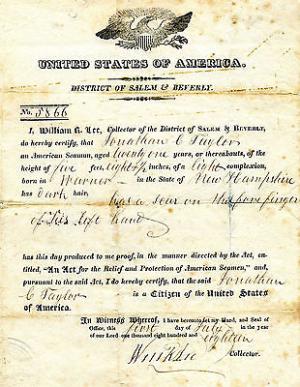 UNITED STATES OF AMERICA.
DISTRICT OF SALEM & BEVERLY.
No. 5866
I, William R. Lee, Collector of the District of SALEM & BEVERLY,
do hereby certify, that Jonathan C Taylor
an American SEAMAN, aged twenty one years, or thereabouts, of the
height of five feet, eight inches, of a light complexion,
born in Warner in the State of New Hampshire
has dark hair,
has a scar on the fore finger
of his left hand
has this day produced to me proof, in the manner directed by the Act, en-
titled, "An Act for the Relief and Protection of American Seamen," and,
pursuant to the said Act, I do hereby certify, that the said Jonathan
C Taylor is a Citizen of the United States
of America.
In Witness Whereof, I have hereunto set my Hand, and Seal of
Office, this first day of July in the year
of our Lord one thousand eight hundred and eighteen
Wm R Lee Collector.